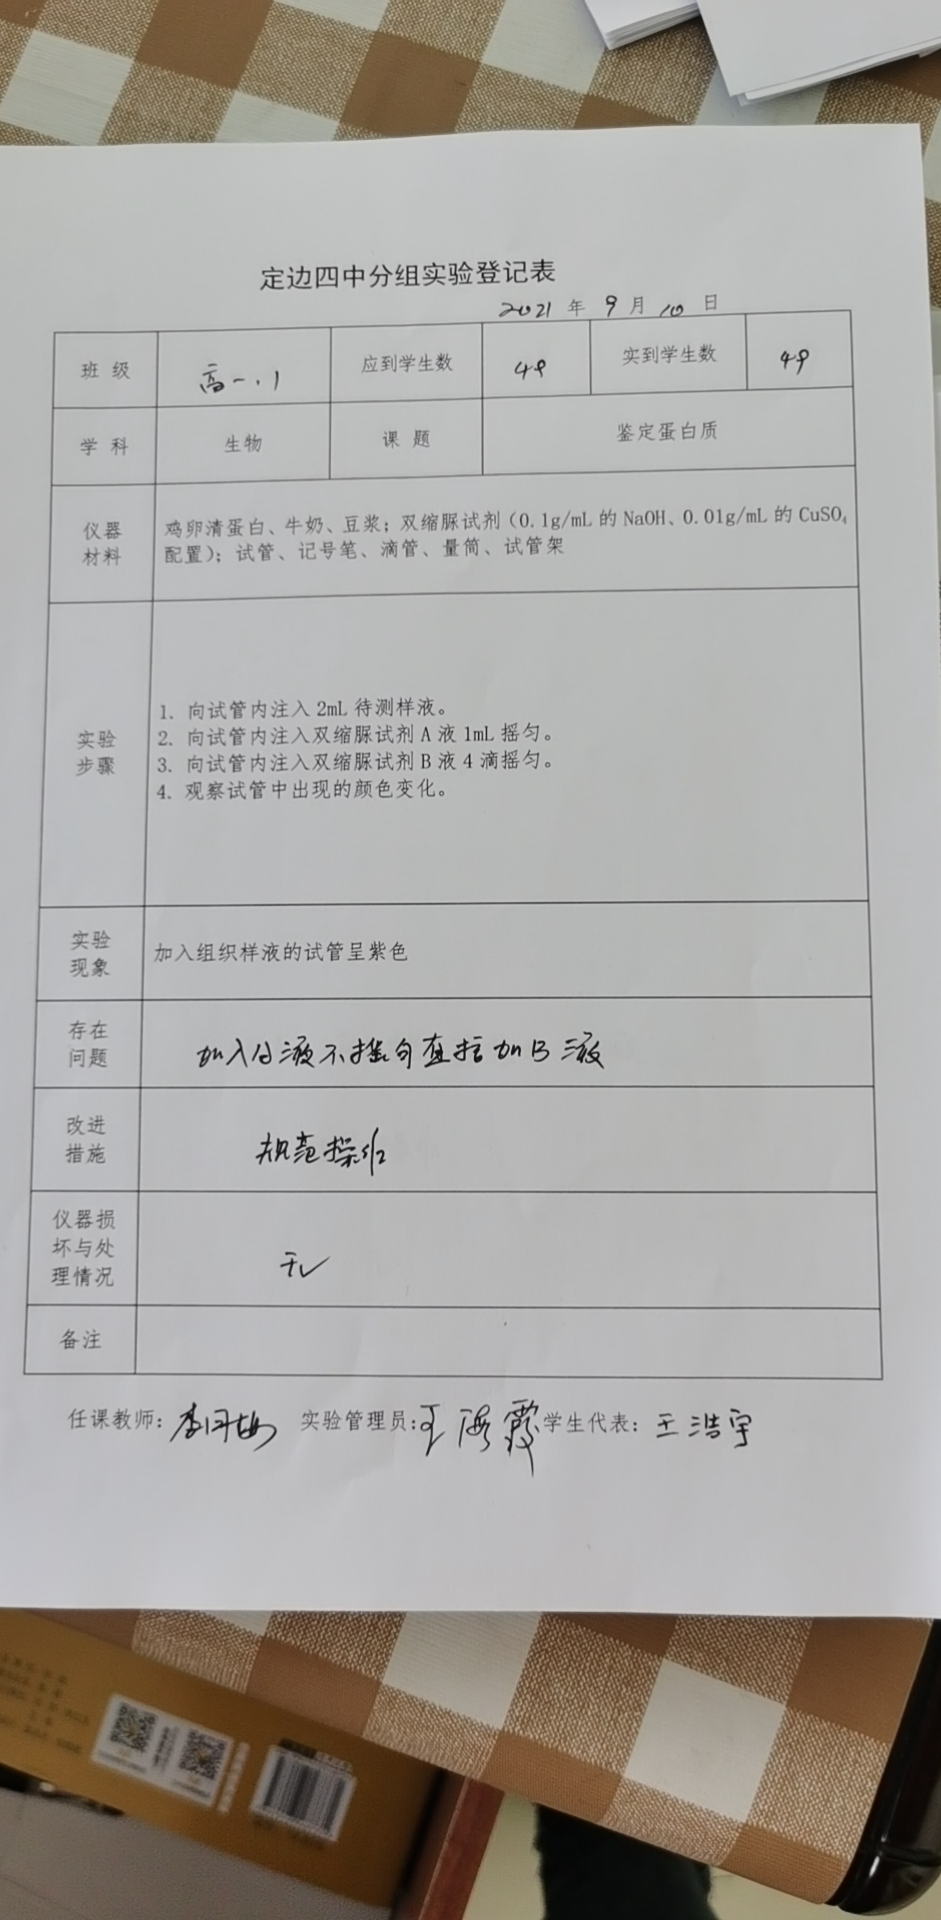 定边四中分组实验登记表
2021 年 9 月 10 日
班 级 高一.1 应到学生数 49 实到学生数 49
学 科 生物 课 题 鉴定蛋白质
仪器
材料
鸡卵清蛋白、牛奶、豆浆；双缩脲试剂（0.1g/mL 的 NaOH、0.01g/mL 的 CuSO₄
配置）；试管、记号笔、滴管、量筒、试管架
实验
步骤
1. 向试管内注入 2mL 待测样液。
2. 向试管内注入双缩脲试剂 A 液 1mL 摇匀。
3. 向试管内注入双缩脲试剂 B 液 4 滴摇匀。
4. 观察试管中出现的颜色变化。
实验
现象
加入组织样液的试管呈紫色
存在
问题
加入A液不摇匀直接加B液
改进
措施
规范操作
仪器损
坏与处
理情况
无
备注
任课教师: 实验管理员:王海霞 学生代表: 王浩宇